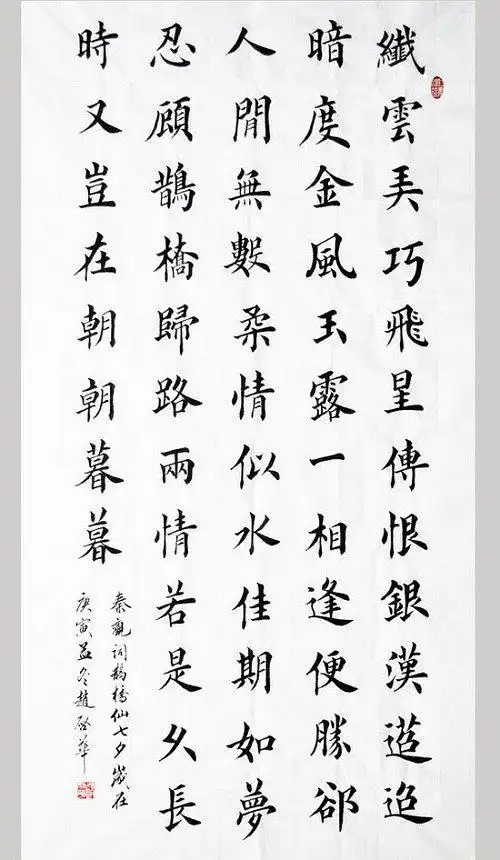 纖雲弄巧飛星傳恨銀漢迢迢
暗度金風玉露一相逢便勝卻
人閒無數柔情似水佳期如夢
忍顧鵲橋歸路兩情若是久長
時又豈在朝朝暮暮
秦觀詞鵲橋仙七夕歲在
庚寅孟冬趙啓華